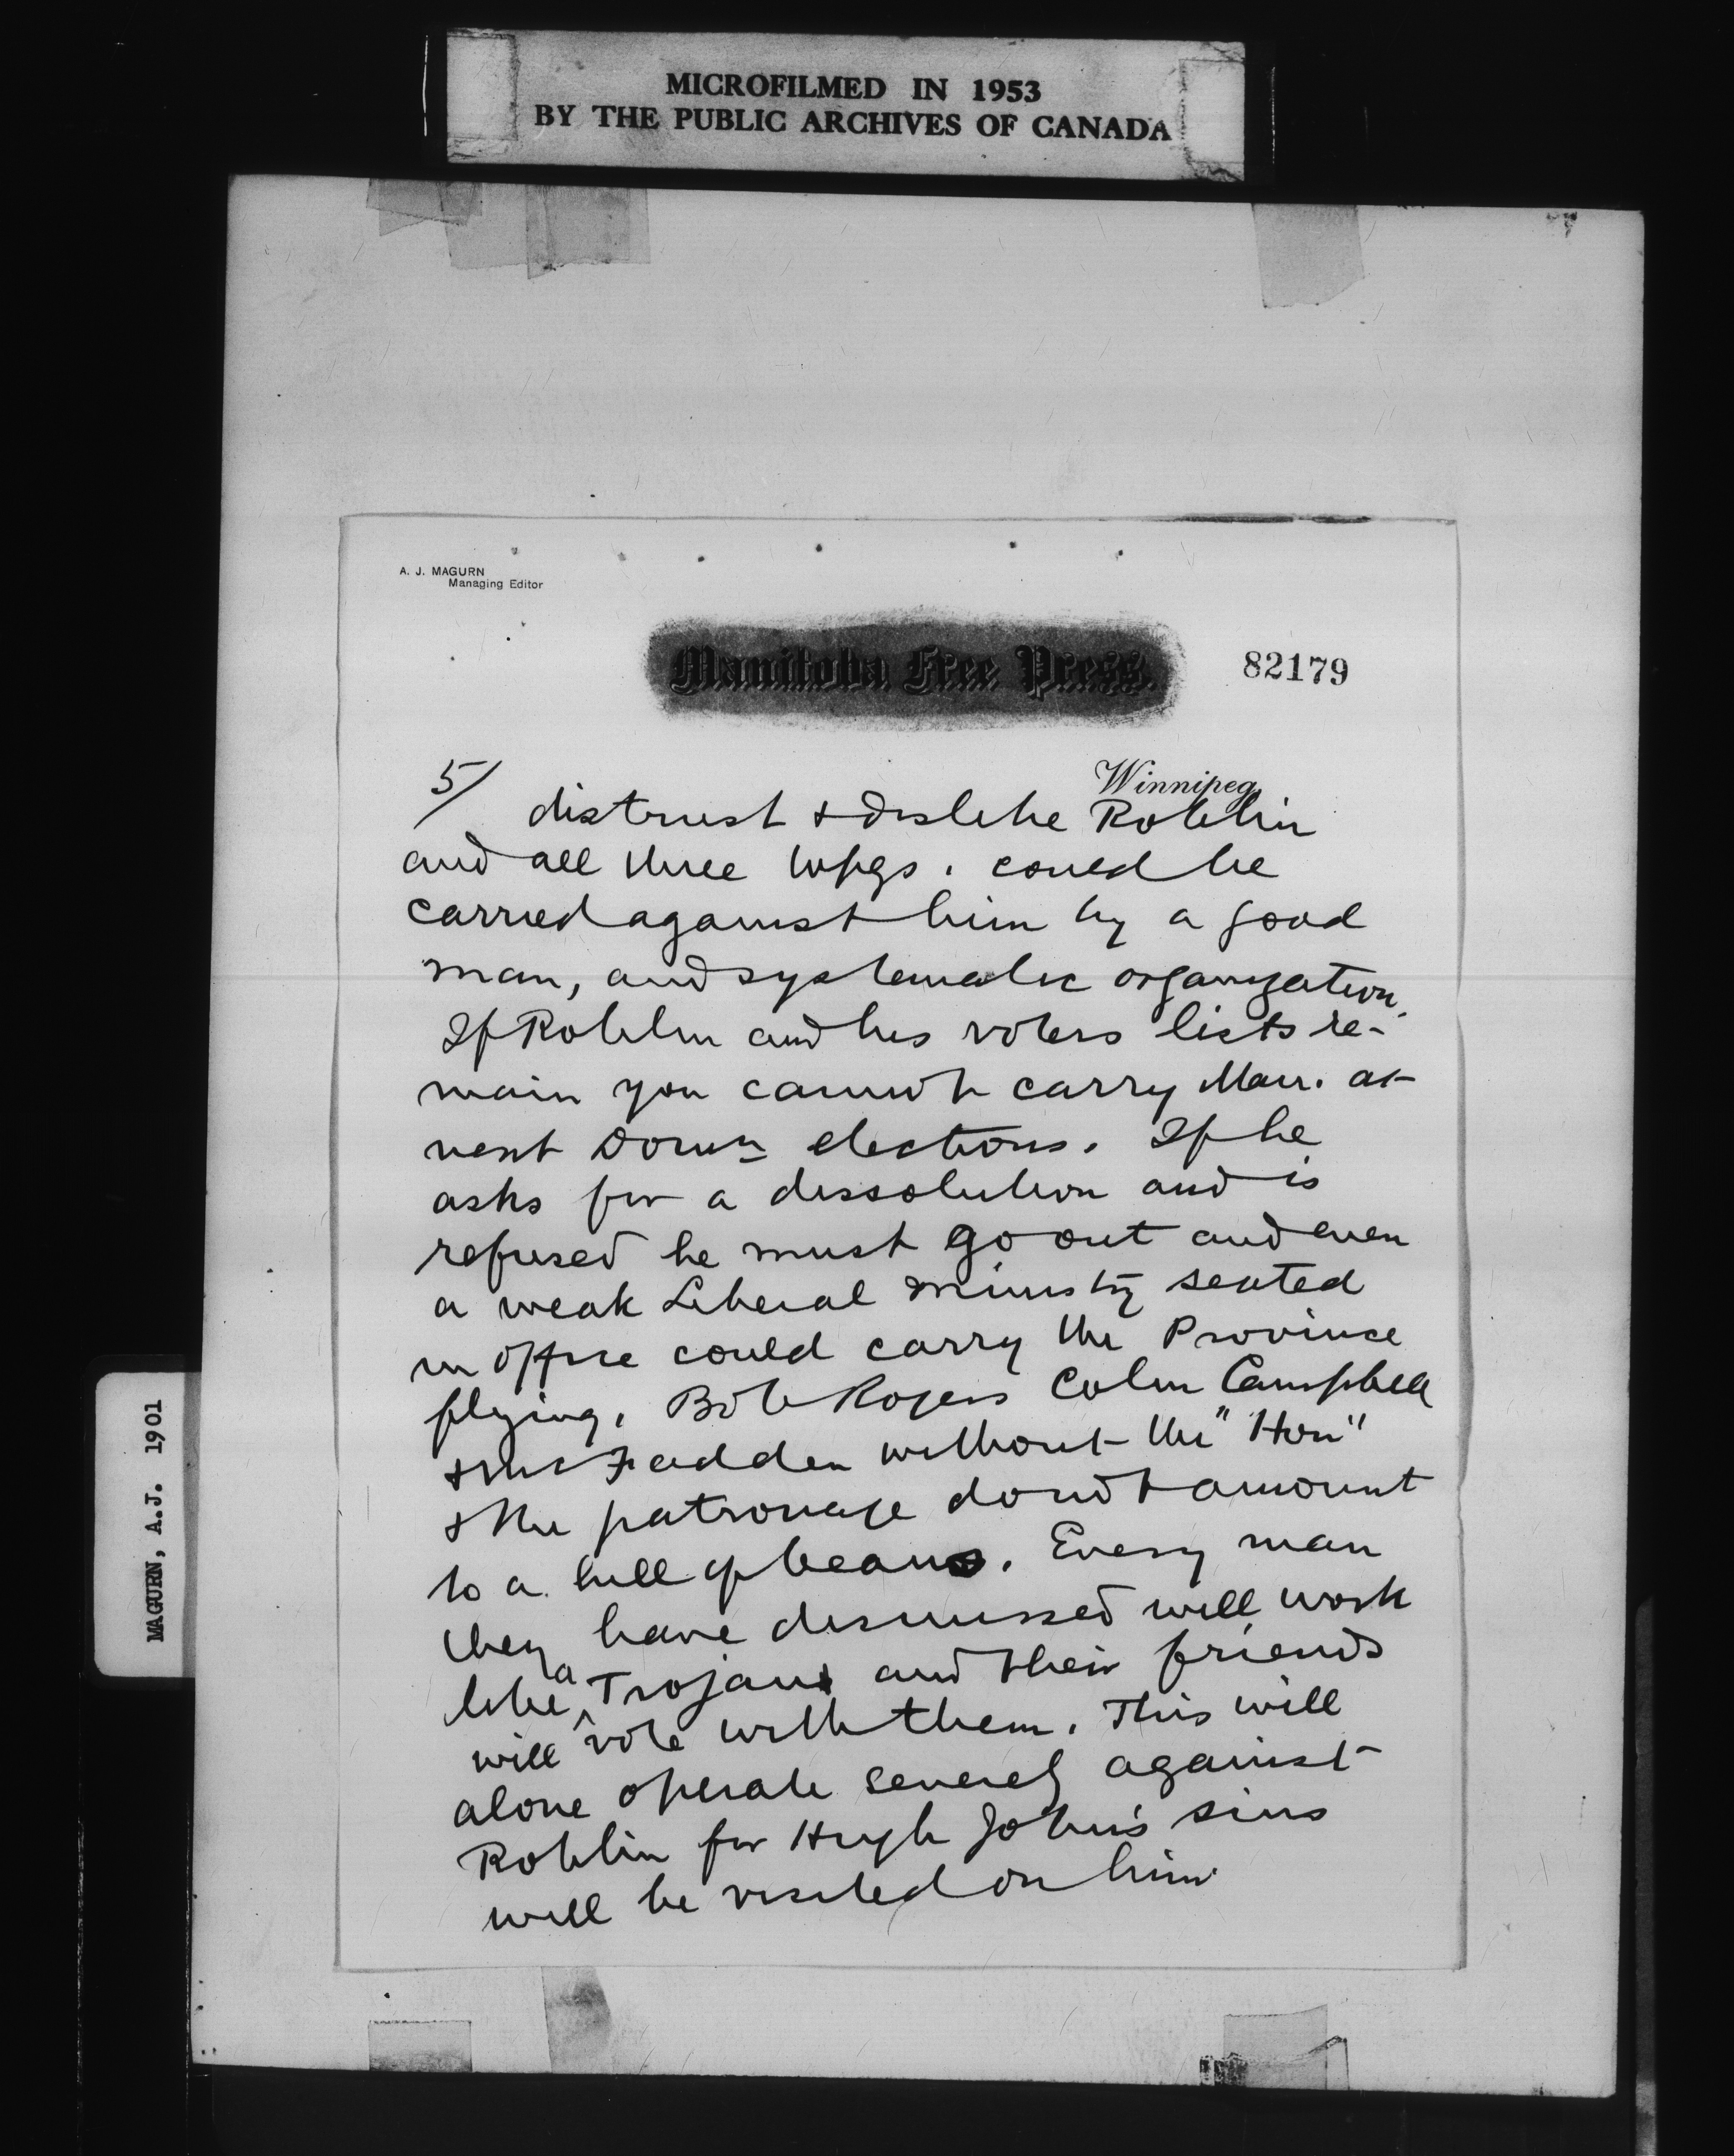 MICROFILMED IN 1953
BY THE PUBLIC ARCHIVES OF CANADA
A. J. MAGURN
Managing Editor
Manitoba Free Press.
82179
Winnipeg,
5/ distrust & dislike Roblin
and all three Wpgs. could be
carried against him by a good
man, and systematic organization.
If Roblin and his voters lists re-
main you cannot carry Man. at
next Domn elections. If he
asks for a dissolution and is
refused he must go out and even
a weak Liberal ministry seated
in office could carry the Province
flying. Bob Rogers Colin Campbell
& McFadden without the "Hon"
& the patronage dont amount
to a hill of beans. Every man
they have dismissed will work
like a Trojan and their friends
will vote with them. This will
alone operate severely against
Roblin for Hugh John's sins
will be visited on him
MAGURN, A.J. 1901